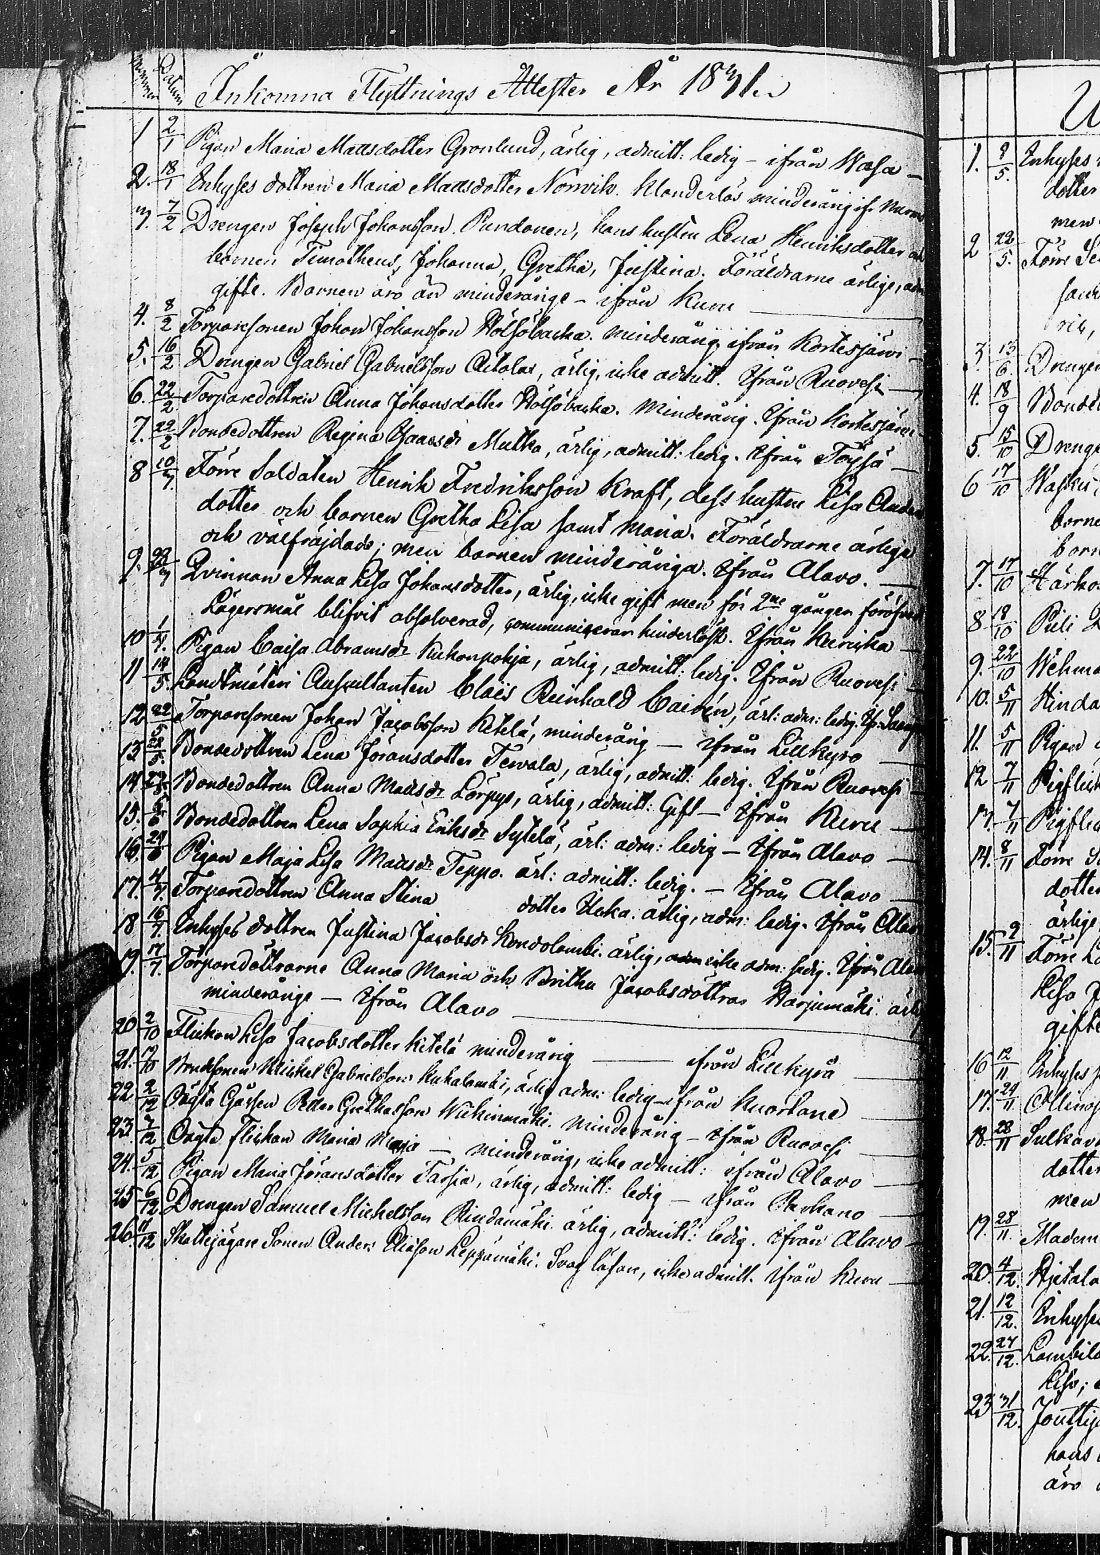 Datum
Inkomna Flyttnings Attester År 1831.
1 2/1 Pigan Maria Mattsdotter Grönlund, ärlig, admitt: ledig – ifrån Wasa –
2. 18/1 Enhyses dottren Maria Mattsdotter Norrvik. Klanderlös minderårig if.
3. 7/2 Drengen Joseph Johansson Pundonen, hans hustru Lena Henriksdotter
barnen Timotheus, Johanna, Gretha, Justina. Föräldrarne ärlige, adm
gifte. Barnen äro än minderårige – ifrån Kuru
4. 8/2 Torparesonen Johan Johansson Hölsöbacka. minderårig ifrån Kortesjärvi –
5. 16/2 Drengen Gabriel Gabrielsson Aitolax, ärlig, icke admitt. Ifrån Ruovesi –
6. 22/2 Torparedottren Anna Johansdotter Hölsöbacka. Minderårig. Ifrån Kortesjärvi
7. 22/2 Bondedottren Regina Isaacsdr Mutka, ärlig, admitt: ledig. Ifrån Töysä –
8 10/3 Förre Soldaten Henrik Fredriksson Kraft, dess hustru Lisa Anders
dotter och barnen Gretha Lisa samt Maria. Föräldrarne ärliga
och välfräjdade; men barnen minderåriga. Ifrån Alavo. –
9. 23/3 Qvinnan Anna Lisa Johansdotter, ärlig, icke gift men för 2ne gången föröfvat
Lägersmål blifvit absolverad, communicerar hinderlöst. Ifrån Keuruka –
10 1/4. Pigan Caisa Abramsdr Kuckonpohja, ärlig, admitt: ledig. Ifrån Ruovesi –
11 14/5 Landtmäteri Auscultanten Claës Reinhold Cairén, ärl: adm: ledig. If:
12 22/5 Torparesonen Johan Jacobsson Ketelä, minderårig – Ifrån Lillkyro –
13 28/5 Bondedottren Lena Jöransdotter Tervala, ärlig, admitt: ledig. Ifrån Ruovesi –
14 Bondedottren Anna Mattsdr Lörpys, ärlig, admitt: Gift – Ifrån Kuru –
15. Bondedottren Lena Sophia Eriksdr Sytelä, ärl: adm: ledig – Ifrån Alavo –
16. 29/6 Pigan Maja Lisa Mattsdr Teppo. ärl: admitt: ledig. – Ifrån Alavo –
17. 4/7. Torparedottren Anna Stina dotter Uhka: ärlig, adm: ledig. Ifrån Alavo
18 16/7 Enhyses dottren Justina Jacobsdr Kondolambi. ärlig, icke adm: ledig. Ifrån Alavo
19. 17/7 Torparedöttrarne Anna Maria och Britha Jacobsdöttrar Harjumäki. ärlig
minderårige – Ifrån Alavo
20 2/10 Flickan Lisa Jacobsdotter Ketelä minderårig – ifrån Lillkyrå –
21. 17/10 Bondsonen Michel Gabrielsson Kuhalambi, ärlig adm: ledig – ifrån Kuortane
22 2/12 Oägta Gåssen Petter Grethasson Wehinmäki. minderårig – Ifrån Ruovesi –
23 4/12 Oägta flickan Maria Maja – minderårig, icke admitt: ifrån Alavo –
24. 5/12 Pigan Maria Jöransdotter Tarsia, ärlig, admitt: ledig – ifrån Parkano –
25 6/12 Drengen Samuel Michelsson Rindamäki. ärlig, admitt: ledig. Ifrån Alavo –
26. 11/12 Skattejägare Sonen Anders Eliäson Leppämäki. Svag läsan, icke admitt. Ifrån Kuru –
1. 9/5. Enhyses
dotter
men
2 28/5. Förre
3 13/6 Drengen
4. 18/9
5 15/10 Drenge
6 17/10
barne
barn
7. 17/10
8 18/10
9. 22/10
10. 5/11
11. 5/11 Pigan
12 7/11
13. 7/11
14. 8/11 Förre
dotter
ärlige
15. 9/11 Förre
Lisa
gifte
16 12/11 Enhyses
17. 24/11
18. 28/11
dotter
men
19. 28/11
20. 4/12.
21. 12/12. Enhyses
22. 27/12.
Lisa;
23 31/12.
hans
äro